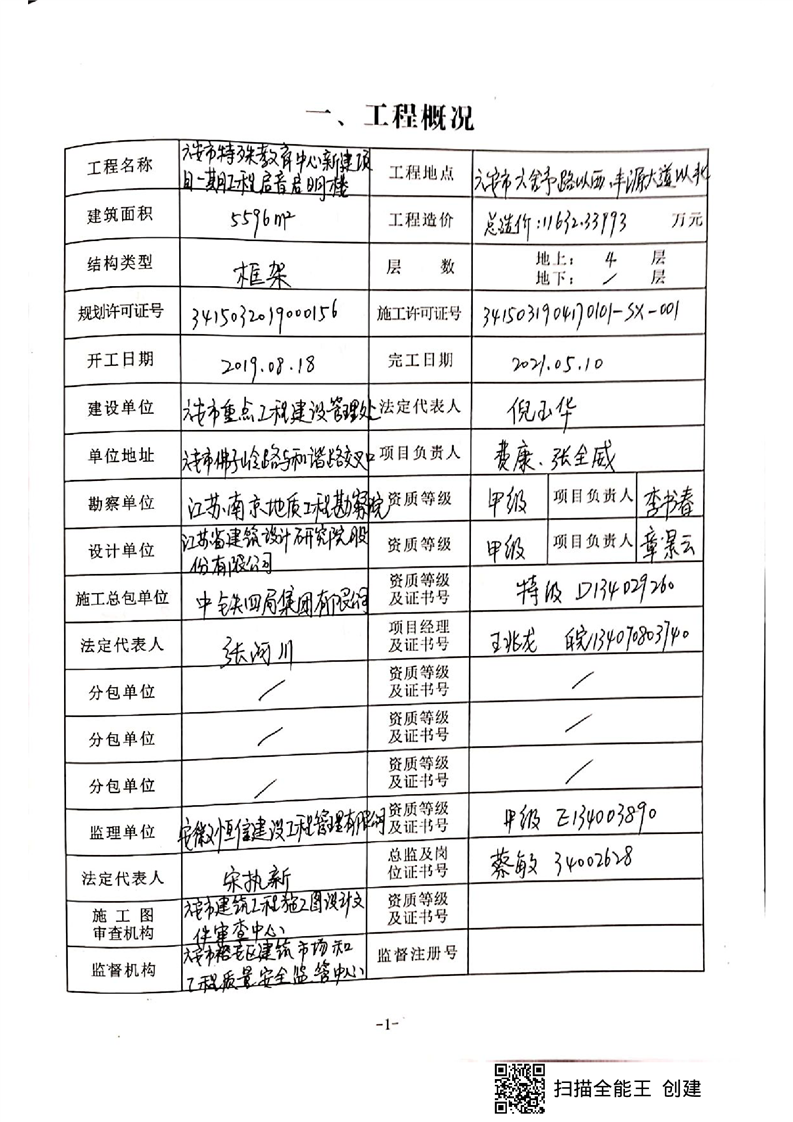 一、工程概况
工程名称 六安市特殊教育中心新建项目一期工程启音启明楼 工程地点 六安市六舍予路以西,丰源大道以北
建筑面积 5596m² 工程造价 总造价:11632.33993 万元
结构类型 框架 层数 地上:4层
地下:/层
规划许可证号 341503201900156 施工许可证号 3415031904170101-SX-001
开工日期 2019.08.18 完工日期 2021.05.10
建设单位 六安市重点工程建设管理处 法定代表人 倪玉华
单位地址 六安市佛子岭路与和谐路交叉口 项目负责人 费康、张全威
勘察单位 江苏南京地质工程勘察院 资质等级 甲级 项目负责人 李书春
设计单位 江苏省建筑设计研究院股份有限公司 资质等级 甲级 项目负责人 章景云
施工总包单位 中铁四局集团有限公司 资质等级及证书号 特级 D134029260
法定代表人 张河川 项目经理及证书号 王兆龙 皖134070803740
分包单位 / 资质等级及证书号 /
分包单位 / 资质等级及证书号 /
分包单位 / 资质等级及证书号 /
监理单位 安徽恒信建设工程管理有限公司 资质等级及证书号 甲级 E134003890
法定代表人 宋执新 总监及岗位证书号 蔡敏 34002628
施工图审查机构 六安市建筑工程施工图设计文件审查中心 资质等级及证书号
监督机构 六安市裕安区建筑市场和工程质量安全监管中心 监督注册号
-1-
扫描全能王 创建